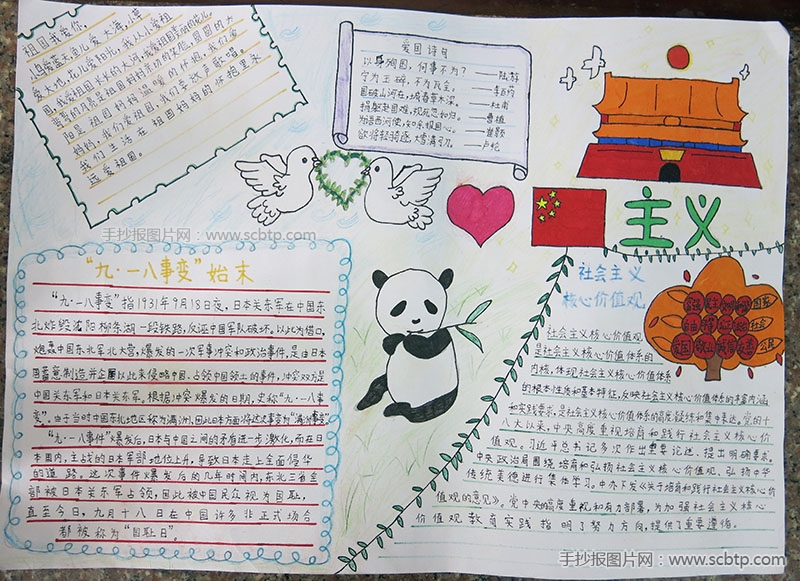 祖国我爱你
小鸟爱蓝天,鱼儿爱大海,小草
爱大地,花儿爱阳光,我从小爱祖
国,我爱祖国长长的大河,我爱祖国美丽的花儿。
我们生活在祖国妈妈的怀抱里永
远爱祖国。
爱国诗句
以身殉国,何事不为?——陆游
宁为玉碎,不为瓦全。——李百药
国破山河在,城春草木深。——杜甫
捐躯赴国难,视死忽如归。——曹植
为语西河使,知余报国心。——崔颢
欲将轻骑逐,大雪满弓刀。——卢纶
主义
手抄报图片网:www.scbtp.com
“九·一八事变”始末
“九·一八事变”指1931年9月18日夜,日本关东军在中国东
北炸毁沈阳柳条湖一段铁路,反诬中国军队破坏。以此为借口,
炮轰中国东北军北大营,爆发的一次军事冲突和政治事件,是由日本
蓄意制造并企图以此来侵略中国、占领中国领土的事件,冲突双方是
中国关东军和日本关东军,根据冲突爆发的日期,史称“九·一八事
变”。由于当时中国东北地区称为满洲,因此日本方面将这次事变为“满洲事变”
“九·一八事件”爆发后,日本与中国之间的矛盾进一步激化,而在日
本国内,主战的日本军部地位上升,导致日本走上全面侵华
的道路。这次事件爆发后的几年时间内,东北三省全
部被日本关东军占领,因此被中国民众视为国耻,
直至今日,九月十八日在中国许多非正式场合
都被称为“国耻日”。
社会主义
核心价值观
国家
社会
公民
社会主义核心价值观
是社会主义核心价值体系的
内核,体现社会主义核心价值体系
的根本性质和基本特征,反映社会主义核心价值体系的丰富内涵
和实践要求,是社会主义核心价值体系的高度凝练和集中表达。党的十
八大以来,中央高度重视培育和践行社会主义核心价
值观。习近平总书记多次作出重要论述、提出明确要求。
中央政治局围绕培育和弘扬社会主义核心价值观、弘扬中华
传统美德进行集体学习。中办下发《关于培育和践行社会主义核心价
值观的意见》。党中央的高度重视和有力部署,为加强社会主义核心
价值观教育实践指明了努力方向,提供了重要遵循。
手抄报图片网:www.scbtp.com